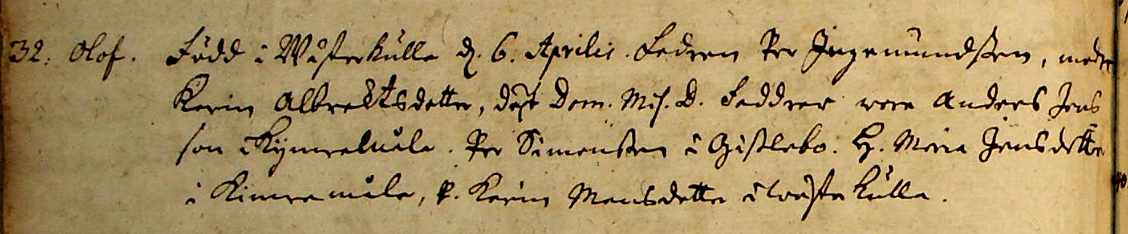 32. Olof. Född i Wästerkulla d. 6. Aprilis. Fadren Per Ingemundssen, moder
Karin Albrektsdotter, döpt Dom. Mis. D. Faddrar vore Anders Jens
son i Kymremåla. Per Simonssen i Gisslebo. H. Maria Jensdotter
i Kimremåla, P. Karin Monsdotter i Wästerkulla.